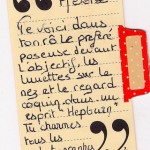 Te voici dans
ton rôle préféré
poseuse devant
l'objectif, les
lunettes sur le
nez et le regard
coquin, dans un
esprit "Hepburn"
Tu charmes
tous les